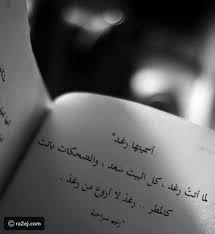 أسميتها رغد"
لما أتت رغد ، كل البيت سعد ، والضحكات باتت
كالمطر .. رغد لا أروع من رغد ..
© ra2ej.com